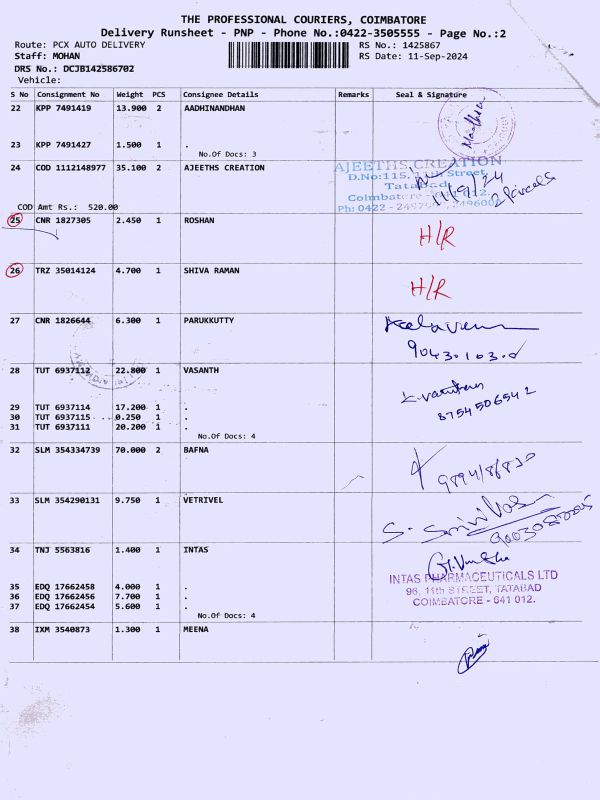 THE PROFESSIONAL COURIERS, COIMBATORE
Delivery Runsheet - PNP - Phone No.:0422-3505555 - Page No.:2
Route: PCX AUTO DELIVERY RS No.: 1425867
Staff: MOHAN RS Date: 11-Sep-2024
DRS No.: DCJB142586702
Vehicle:
S No Consignment No Weight PCS Consignee Details Remarks Seal & Signature
22 KPP 7491419 13.900 2 AADHINANDHAN
23 KPP 7491427 1.500 1 .
No.Of Docs: 3
24 COD 1112148977 35.100 2 AJEETHS CREATION
AJEETHS CREATION
D.No:115, 11th Street,
Tatabad
Coimbatore 641 012.
11/9/24
2 Parcels
COD Amt Rs.: 520.00
25 CNR 1827305 2.450 1 ROSHAN H/R
26 TRZ 35014124 4.700 1 SHIVA RAMAN H/R
27 CNR 1826644 6.300 1 PARUKKUTTY
28 TUT 6937112 22.800 1 VASANTH
8754506542
29 TUT 6937114 17.200 1 .
30 TUT 6937115 0.250 1 .
31 TUT 6937111 20.200 1 .
No.Of Docs: 4
32 SLM 354334739 70.000 2 BAFNA
33 SLM 354290131 9.750 1 VETRIVEL
34 TNJ 5563816 1.400 1 INTAS
INTAS PHARMACEUTICALS LTD
96, 11th STREET, TATABAD
COIMBATORE - 641 012.
35 EDQ 17662458 4.000 1 .
36 EDQ 17662456 7.700 1 .
37 EDQ 17662454 5.600 1 .
No.Of Docs: 4
38 IXM 3540873 1.300 1 MEENA